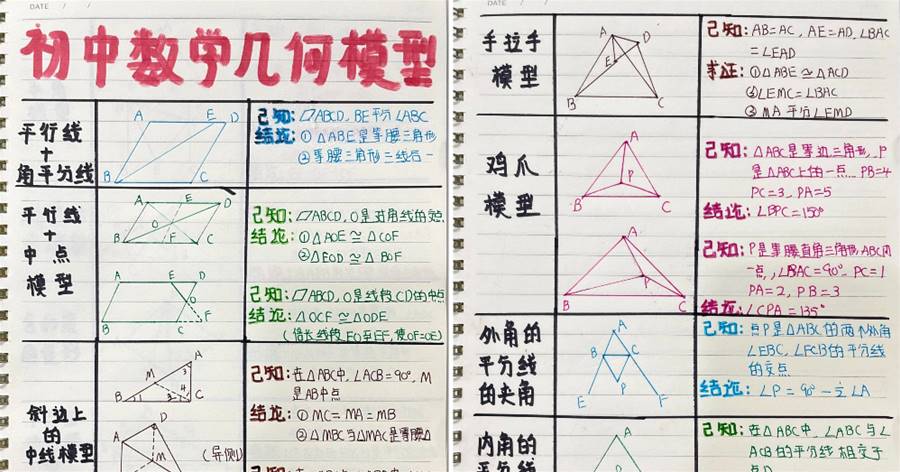 DATE / /
初中数学几何模型
平行线
+
角平分线
A E D
B C
已知: ▱ABCD, BE平分∠ABC
结论: ①△ABE是等腰三角形
②等腰三角形三线合一
平行线
+
中点
模型
A E D
O
B F C
已知: ▱ABCD, O是对角线的交点
结论: ①△AOE≌△COF
②△EOD≌△BOF
A E D
O
B C F
已知: ▱ABCD, O是线段CD的中点
结论: △OCF≌△ODE
(倍长线段EO至EF, 使OF=OE)
斜边上
的
中线模型
A
M 3
4
B 1 2 C
D
M
(异侧)
已知: 在△ABC中, ∠ACB=90°, M
是AB中点
结论: ①MC=MA=MB
②△MBC与△MAC是等腰△
DATE / /
手拉手
模型
A D
E
B C
已知: AB=AC, AE=AD, ∠BAC
=∠EAD
求证: ①△ABE≌△ACD
②∠EMC=∠BAC
③MA平分∠EMD
鸡爪
模型
A
P
B C
已知: △ABC是等边三角形, P
是△ABC上的一点, PB=4
PC=3, PA=5
结论: ∠BPC=150°
A
P
B C
已知: P是等腰直角三角形ABC内
一点, ∠BAC=90°, PC=1
PA=2, PB=3
结论: ∠CPA=135°
外角的
平分线
的夹角
A
B C
P
E F
已知: 点P是△ABC的两个外角
∠EBC, ∠FCB的平分线
的交点
结论: ∠P=90°-½∠A
内角的
平分线
A
已知: 在△ABC中, ∠ABC与∠
ACB的平分线相交于
点